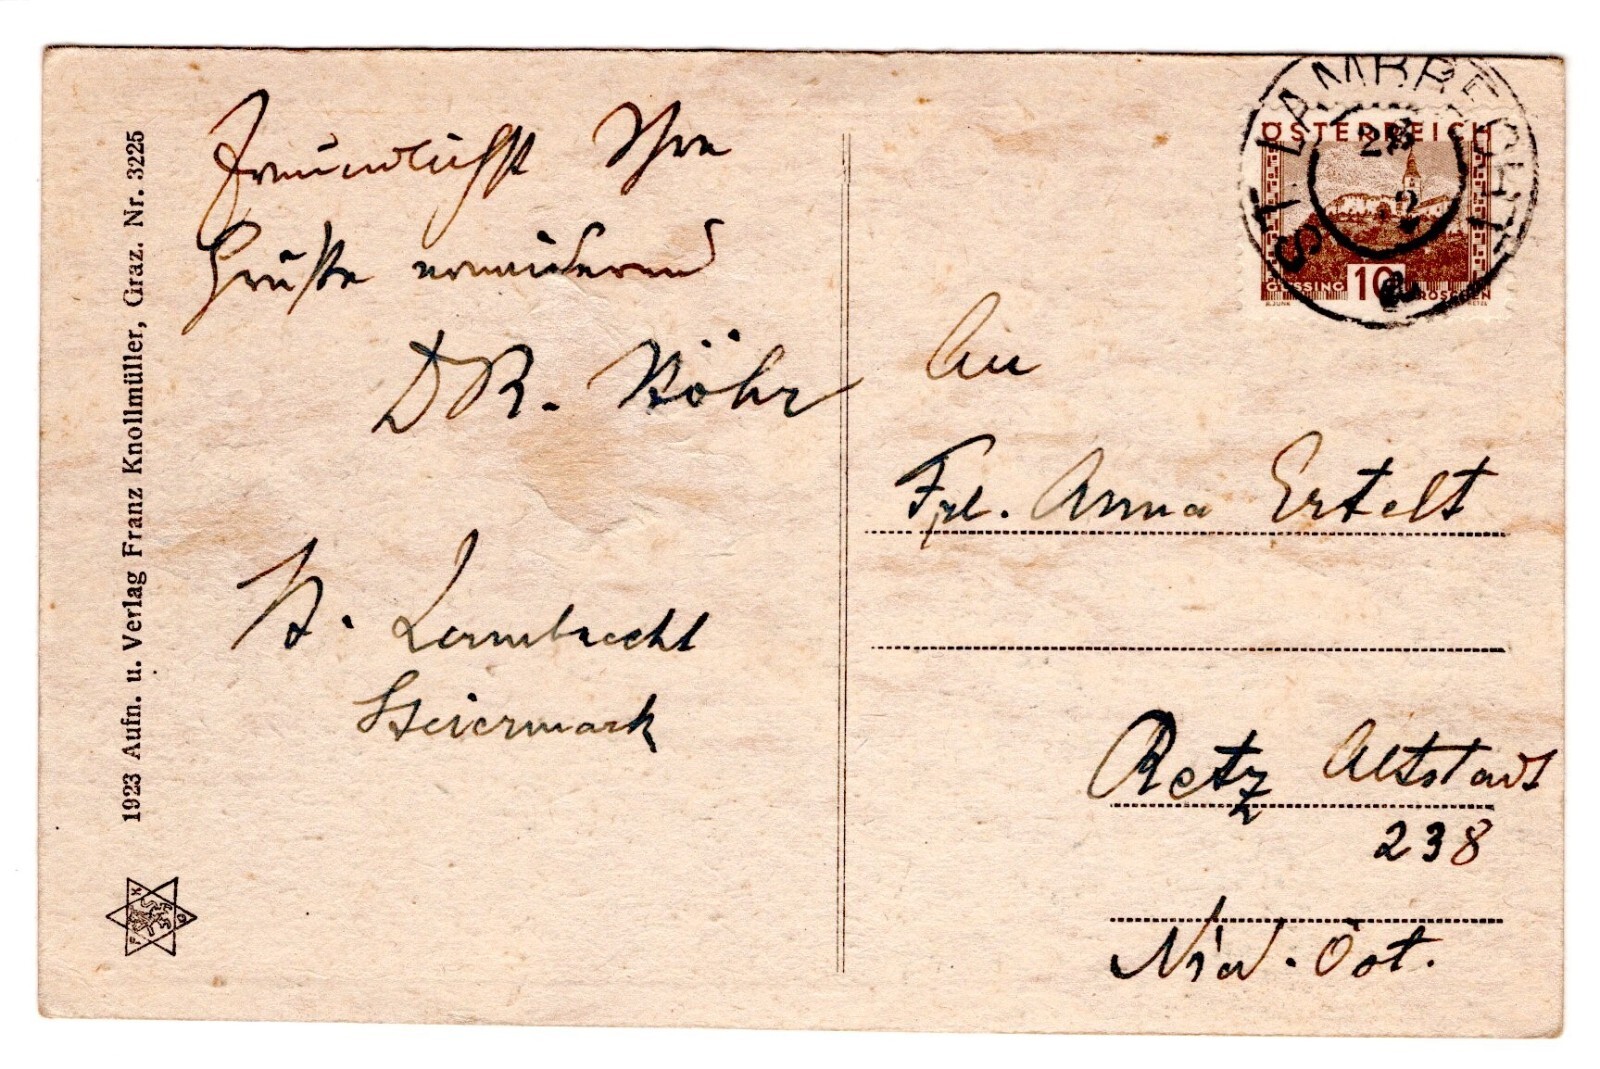 Freundlichst Ihre
Grüße erwidernd
DR. Röhr
St. Lambrecht
Steiermark
1923 Aufn. u. Verlag Franz Knollmüller, Graz. Nr. 3225
F K G
ST LAMBRECHT
ÖSTERREICH
GÜSSING 10 GROSCHEN
An
Frl. Anna Ertelt
Retz Altstadt
238
Nied. Öst.